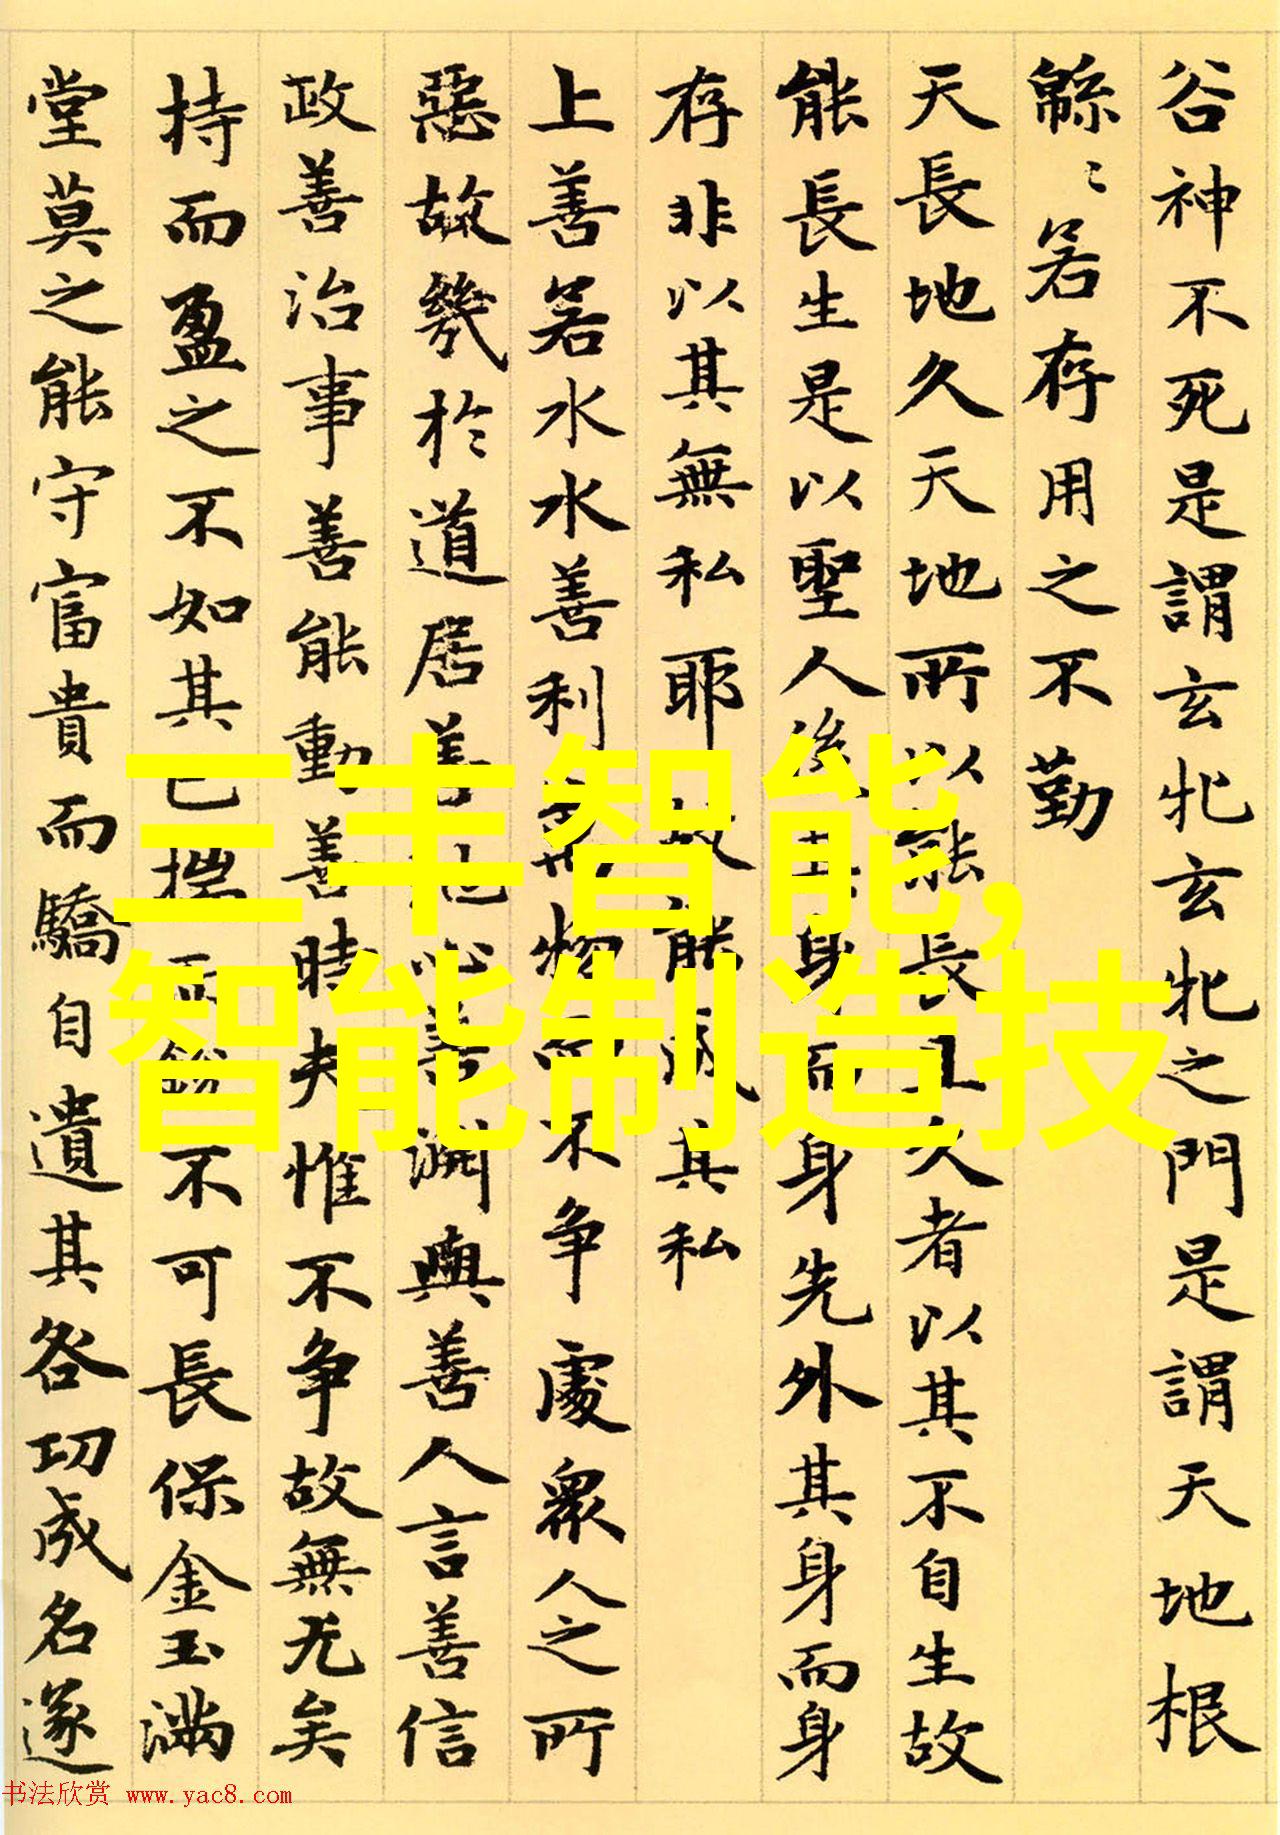 谷神不死是謂玄牝玄牝之門是謂天地根
緜〻若存用之不勤
天長地久天地所以能長且久者以其不自生故
能長生是以聖人後其身而身先外其身而身
存非以其無私耶故能成其私
上善若水水善利萬物而不争處衆人之所
惡故幾於道居善地心善渊與善人言善信
政善治事善能動善時夫惟不争故無尤矣
持而盈之不如其已揣而鋭不可長保金玉满
堂莫之能守富貴而驕自遺其咎功成名遂
三丰智能,
智能制造技
书法欣赏 www.yac8.com